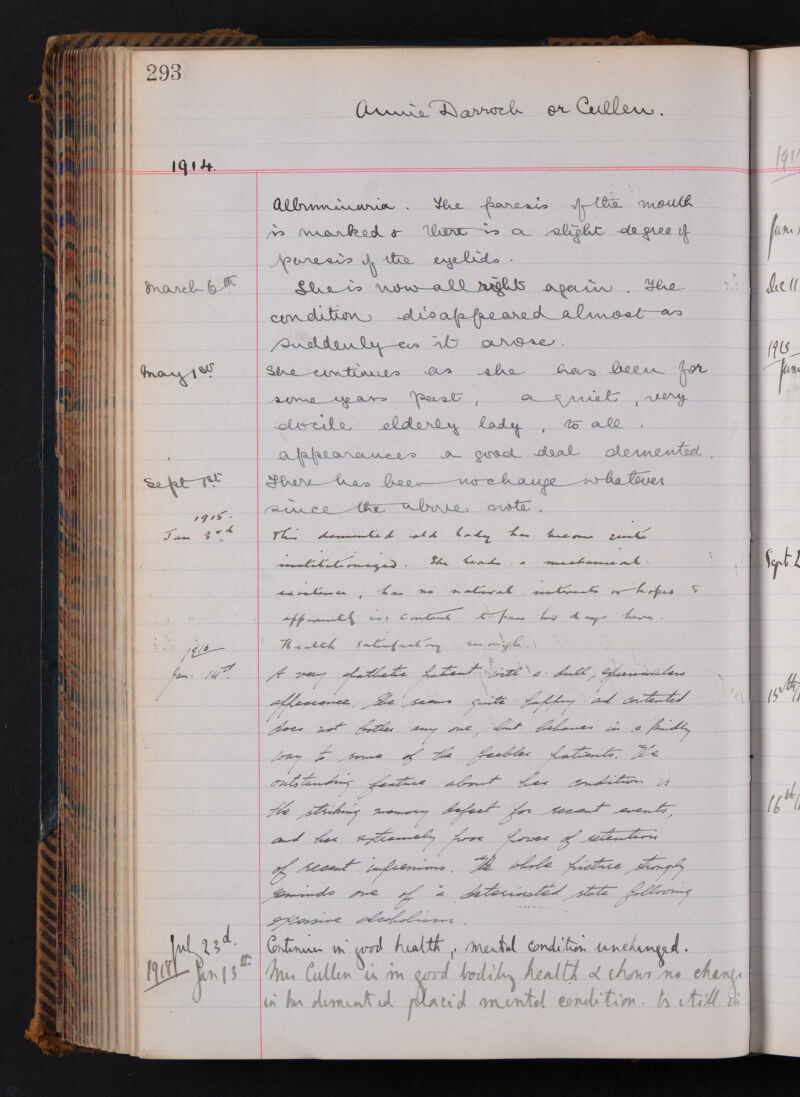 293
Annie Darroch or Cullen.
1914.
Albuminuria. The paresis of the mouth
is marked & there is a slight degree of
paresis of the eyelids.
March 6th She is now all right again. The
condition disappeared almost as
suddenly as it arose.
May 1st She continues as she has been for
some years past, a quiet, very
docile elderly lady, to all
appearances a good deal demented.
Sept 1st There has been no change whatever
since the above note.
1915.
Jan 3rd This demented old lady has become quite
institutionized. She leads a mechanical
existence, has no natural interests or hopes &
apparently is content to pass her days here.
Health satisfactory enough.
1916
Jan. 14th. A very apathetic patient with a dull, expressionless
appearance. She seems quite happy and contented
does not bother any one, but behaves in a kindly
way to some of the feebler patients. The
outstanding feature about her condition is
the striking memory defect for recent events,
and her extremely poor power of retention
of recent impressions. The whole picture strongly
reminds one of a deteriorated state following
excessive alcoholism.
July 23d. Continues in good health, mental condition unchanged.
1918 Jan 13th Mrs Cullen is in good bodily health & shows no change
in her demented placid mental condition. Is still in
191
June
Dec 11
Sept 2
15th
16th